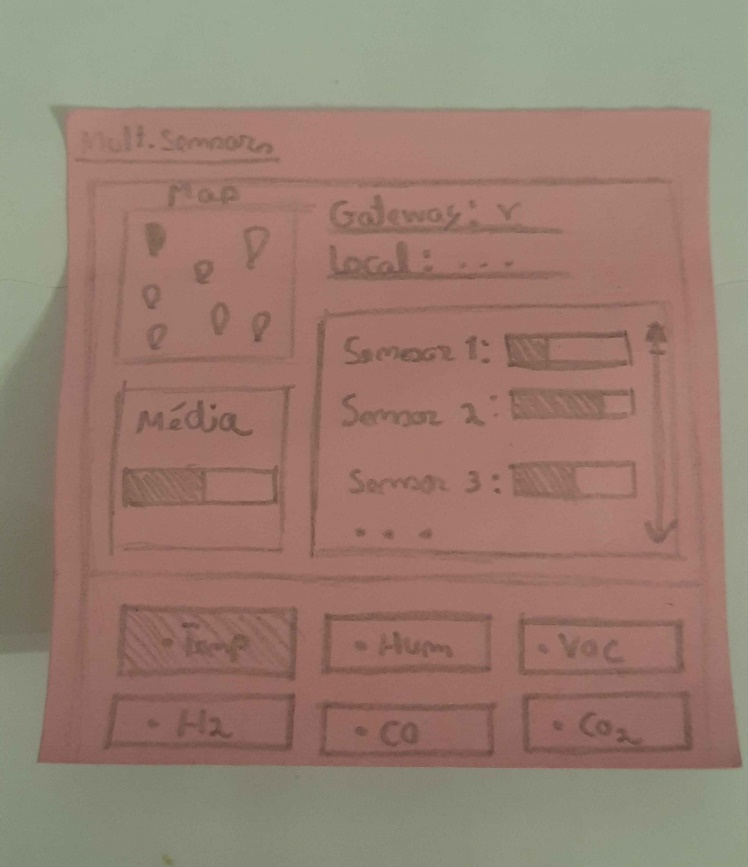 Mult. Sensors
Map
Gateway: v
Local: ...
Média
Sensor 1:
Sensor 2:
Sensor 3:
...
• Temp
• Hum
• VOC
• H2
• CO
• CO₂